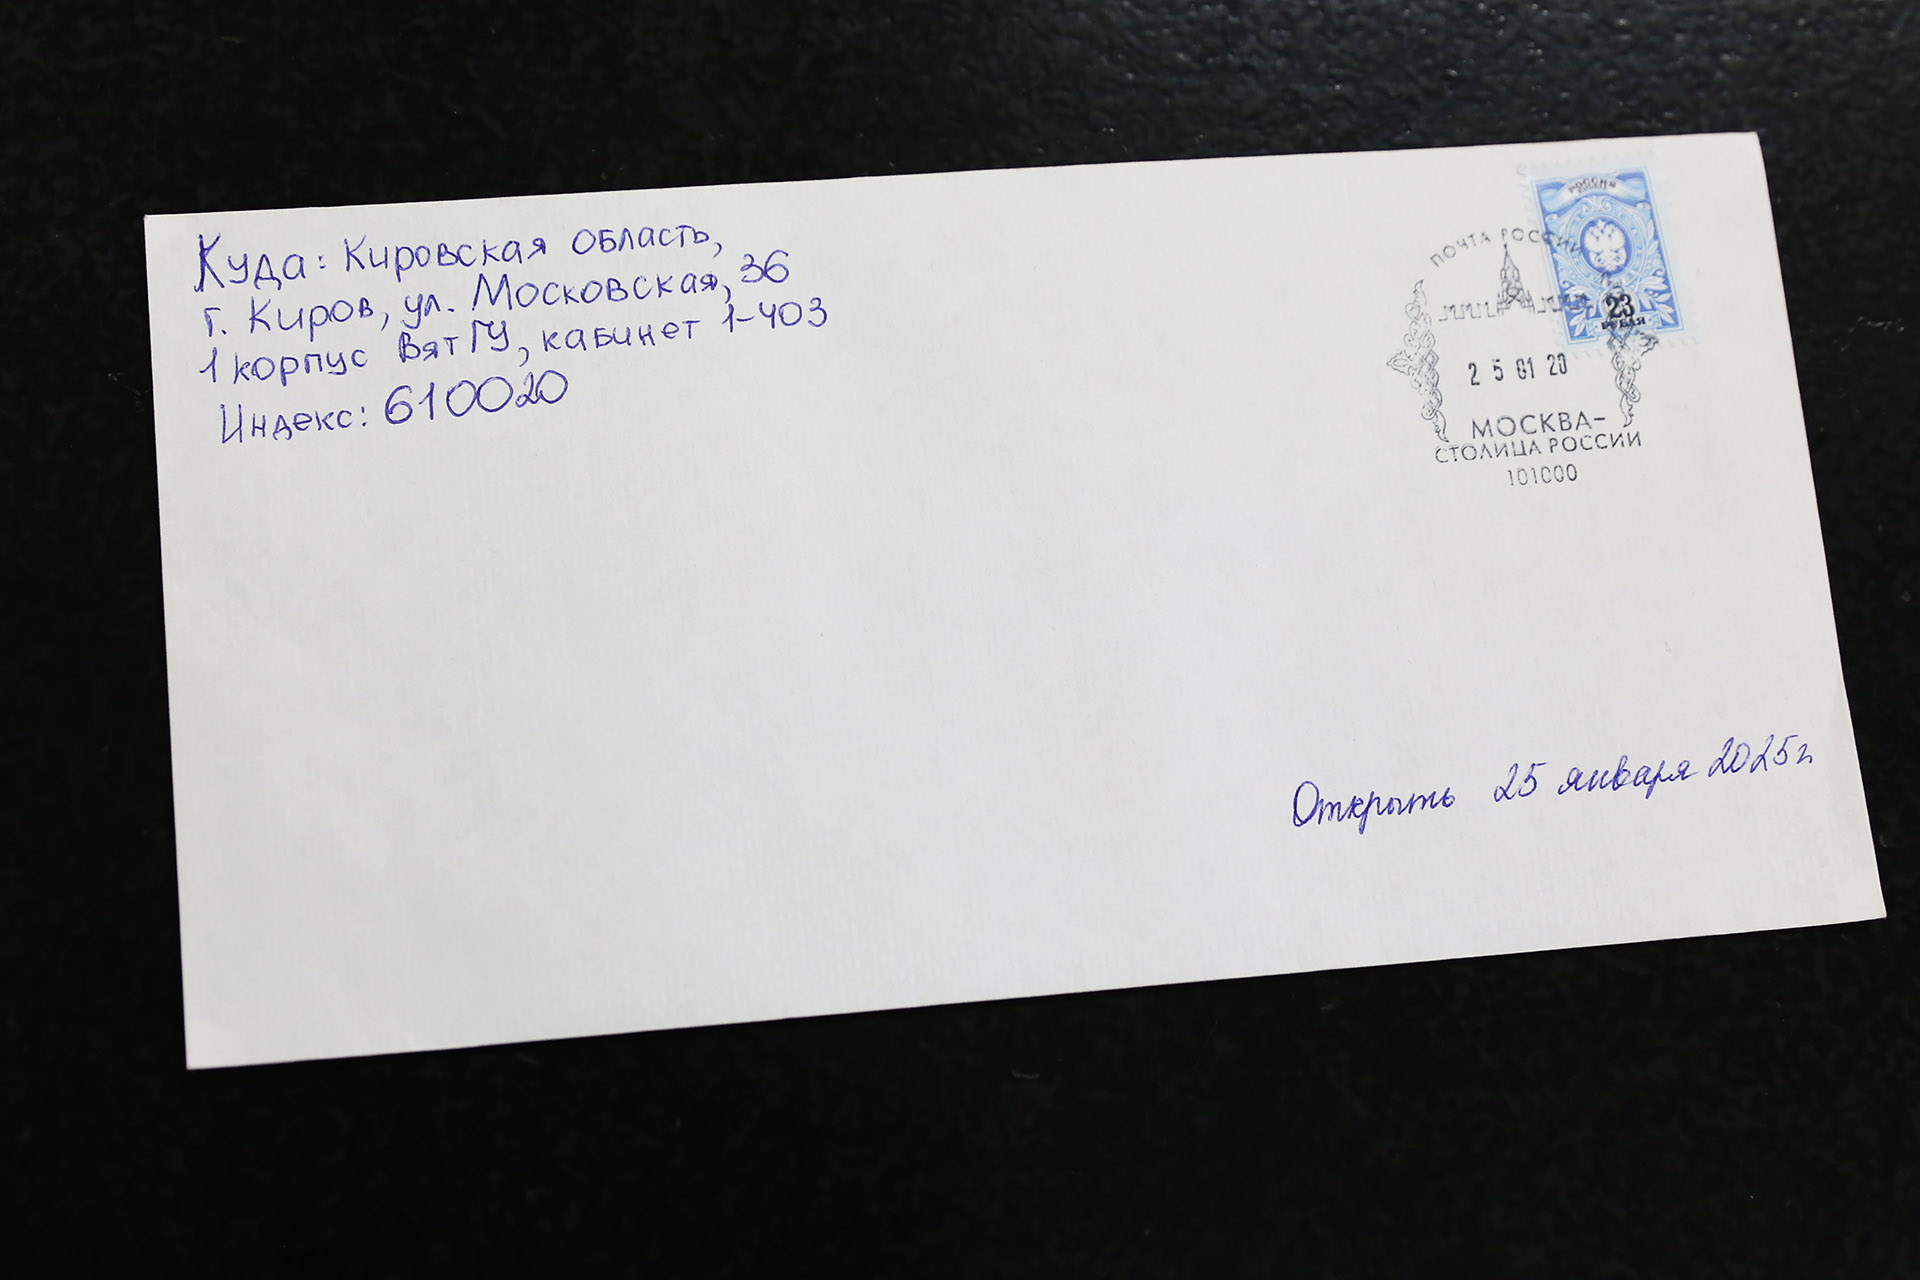 Куда: Кировская область,
г. Киров, ул. Московская, 36
1 корпус ВятГУ, кабинет 1-403
Индекс: 610020
РОССИЯ
23
РУБЛЯ
ПОЧТА РОССИИ
25 01 20
МОСКВА-
СТОЛИЦА РОССИИ
101000
Открыть 25 января 2025г.